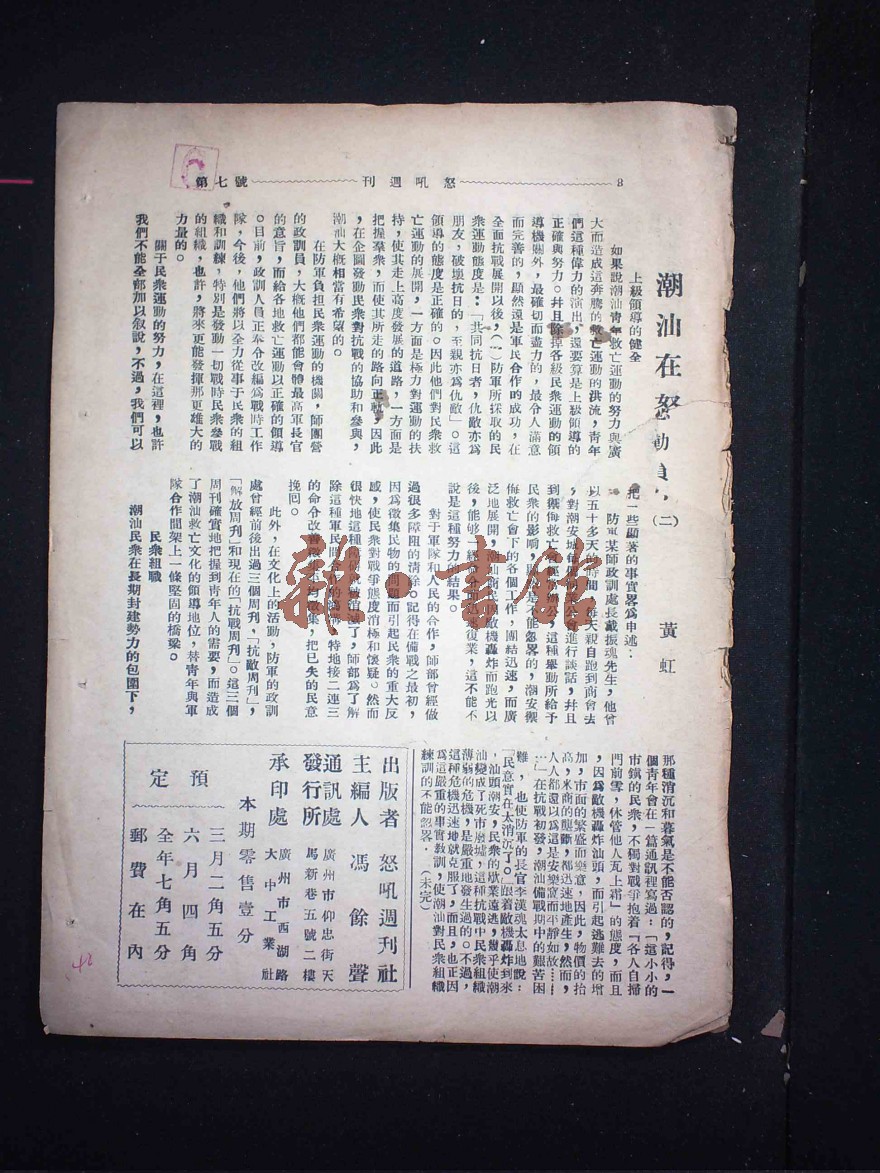 8 怒吼週刊 第七號
潮汕在怒動員 (二)
黃虹
上級領導的健全
如果說潮汕青年救亡運動的努力與廣
大而造成這奔騰的救亡運動的洪流,青年
們這種偉力的演出,還要算是上級領導的
正確與努力。幷且除掉各級民衆運動的領
導機關外,最確切而盡力的,最令人滿意
而完善的,顯然還是軍民合作的成功,在
全面抗戰展開以後,(一)防軍所採取的民
衆運動態度是:「共同抗日者,仇敵亦爲
朋友,破壞抗日的,至親亦爲仇敵」。這
領導的態度是正確的。因此他們對民衆救
亡運動的展開,一方面是極力對運動的扶
持,使其走上高度發展的道路,一方面是
把握羣衆,而使其所走的路向正軌,因此
,在企圖發動民衆對抗戰的協助和參與,
潮汕大概相當有希望的。
在防軍負担民衆運動的機關,師團營
的政訓員,大概他們都能會體最高軍長官
的意旨,而給各地救亡運動以正確的領導
。目前,政訓人員正奉令改編爲戰時工作
隊,今後,他們將以全力從事于民衆的組
織和訓練,特別是發動一切戰時民衆參戰
的組織,也許,將來更能發揮那更雄大的
力量的。
關于民衆運動的努力,在這裡,也許
我們不能全部加以叙說,不過,我們可以
把一些顯著的事實畧爲申述:
防軍某師政訓處長戴振魂先生,他曾
以五十多天的時間,每天親自跑到商會去
,對潮安城每個同業公會進行談話,幷且
到禦侮救亡會經常辦公,這種舉動所給予
民衆的影響,顯然是不能忽畧的,潮安禦
侮救亡會下的各個工作,團結迅速,而廣
泛地展開,潮汕商民因敵機轟炸而跑光以
後,能够一經會分而迅速復業,這不能不
說是這種努力的結果。
對于軍隊和人民的合作,師部曾經做
過很多障阻的清除。記得在備戰之最初,
因爲徵集民物的問題而引起民衆的重大反
感,使民衆對戰爭態度消極和懷疑。然而
很快地這種障碍就被消滅了,師部爲了解
除這種軍民間合作的障碍,特地接二連三
的命令改善徵集平均徵集,把已失的民意
挽囘。
此外,在文化上的活動,防軍的政訓
處曾經前後出過三個周刊,「抗敵周刊」,
「解放周刊」和現在的「抗戰周刊」。這三個
周刊確實地把握到青年人的需要,而造成
了潮汕救亡文化的領導地位,替青年與軍
隊合作間架上一條堅固的橋樑。
民衆組戰
潮汕民衆在長期封建勢力的包圍下,
那種消沉和暮氣是不能否認的,記得,一
個青年會在一篇通訊裡寫過:「這小小的
市鎮的民衆,不獨對戰爭抱着『各人自掃
門前雪,休管他人瓦上霜』的態度,而且
,因爲敵機轟炸汕頭,而引起逃難去的增
加,市面的繁盛而樂意,因此,物價的抬
高,米商的壟斷,都迅速地產生,然而,
人人都還以爲這是安樂窩而平靜如故……
…」在抗戰初發,潮汕備戰期中的艱苦困
難,也使防軍的長官李漢魂太息地說:
「民意實在太消沉了。」跟着敵機轟炸到來
,汕頭潮安,民衆的歇業遠逃,幾乎使潮
汕變成了死市廢墟,這種抗戰中民衆組織
薄弱的危機,是嚴重地發生過的。不過,
這種危機迅速地就克服了,而且,也正因
爲這嚴重的事實教訓,使潮汕對民衆組織
練訓的不能忽畧。(未完)
出版者 怒吼週刊社
主編人 馮餘聲
通訊處 廣州市仰忠街天
發行所 馬新巷五號二樓
承印處 廣州市西湖路
大中工業社
本期零售壹分
預定
三月二角五分
六月四角
全年七角五分
郵費在內
雜·書館